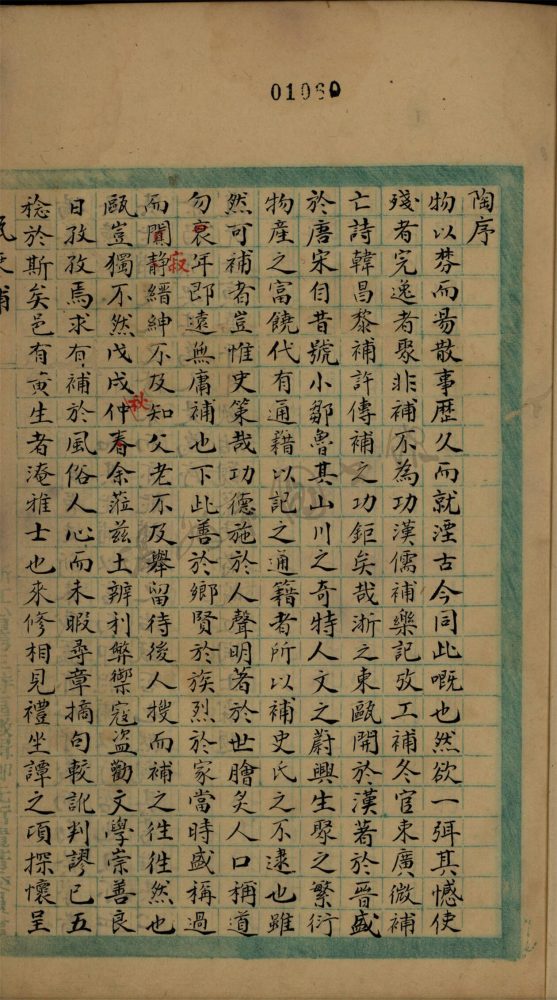 01060
陶序
物以棼而易散事歷久而就湮古今同此嘅也然欲一弭其憾使
殘者完逸者聚非補不為功漢儒補樂記攷工補冬官束廣微補
亡詩韓昌黎補許傳補之功鉅矣哉浙之東甌開於漢著於晉盛
於唐宋自昔號小鄒魯其山川之奇特人文之蔚興生聚之繁衍
物產之富饒代有通籍以記之通籍者所以補史氏之不逮也雖
然可補者豈惟史策哉功德施於人聲明著於世膾炙人口稱道
勿衰年即遠無庸補也下此善於鄉賢於族烈於家當時盛稱過
而闃静寂縉紳不及知父老不及舉留待後人搜而補之徃徃然也
甌豈獨不然戊戌仲春秋余蒞茲土辨利弊禦寇盜勸文學崇善良
日孜孜焉求有補於風俗人心而未暇尋章摘句較訛判謬已五
稔於斯矣邑有黃生者淹雅士也來修相見禮坐譚之項探懷呈